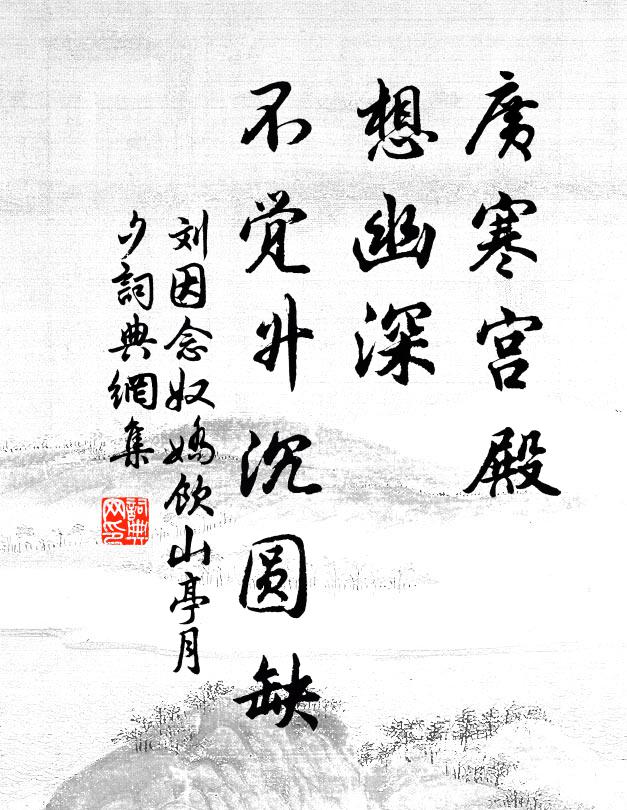 廣寒宮殿
想幽深
不覚升沉圆缺
刘因念奴嬌飲山亭月
夕詞典網集
詞典